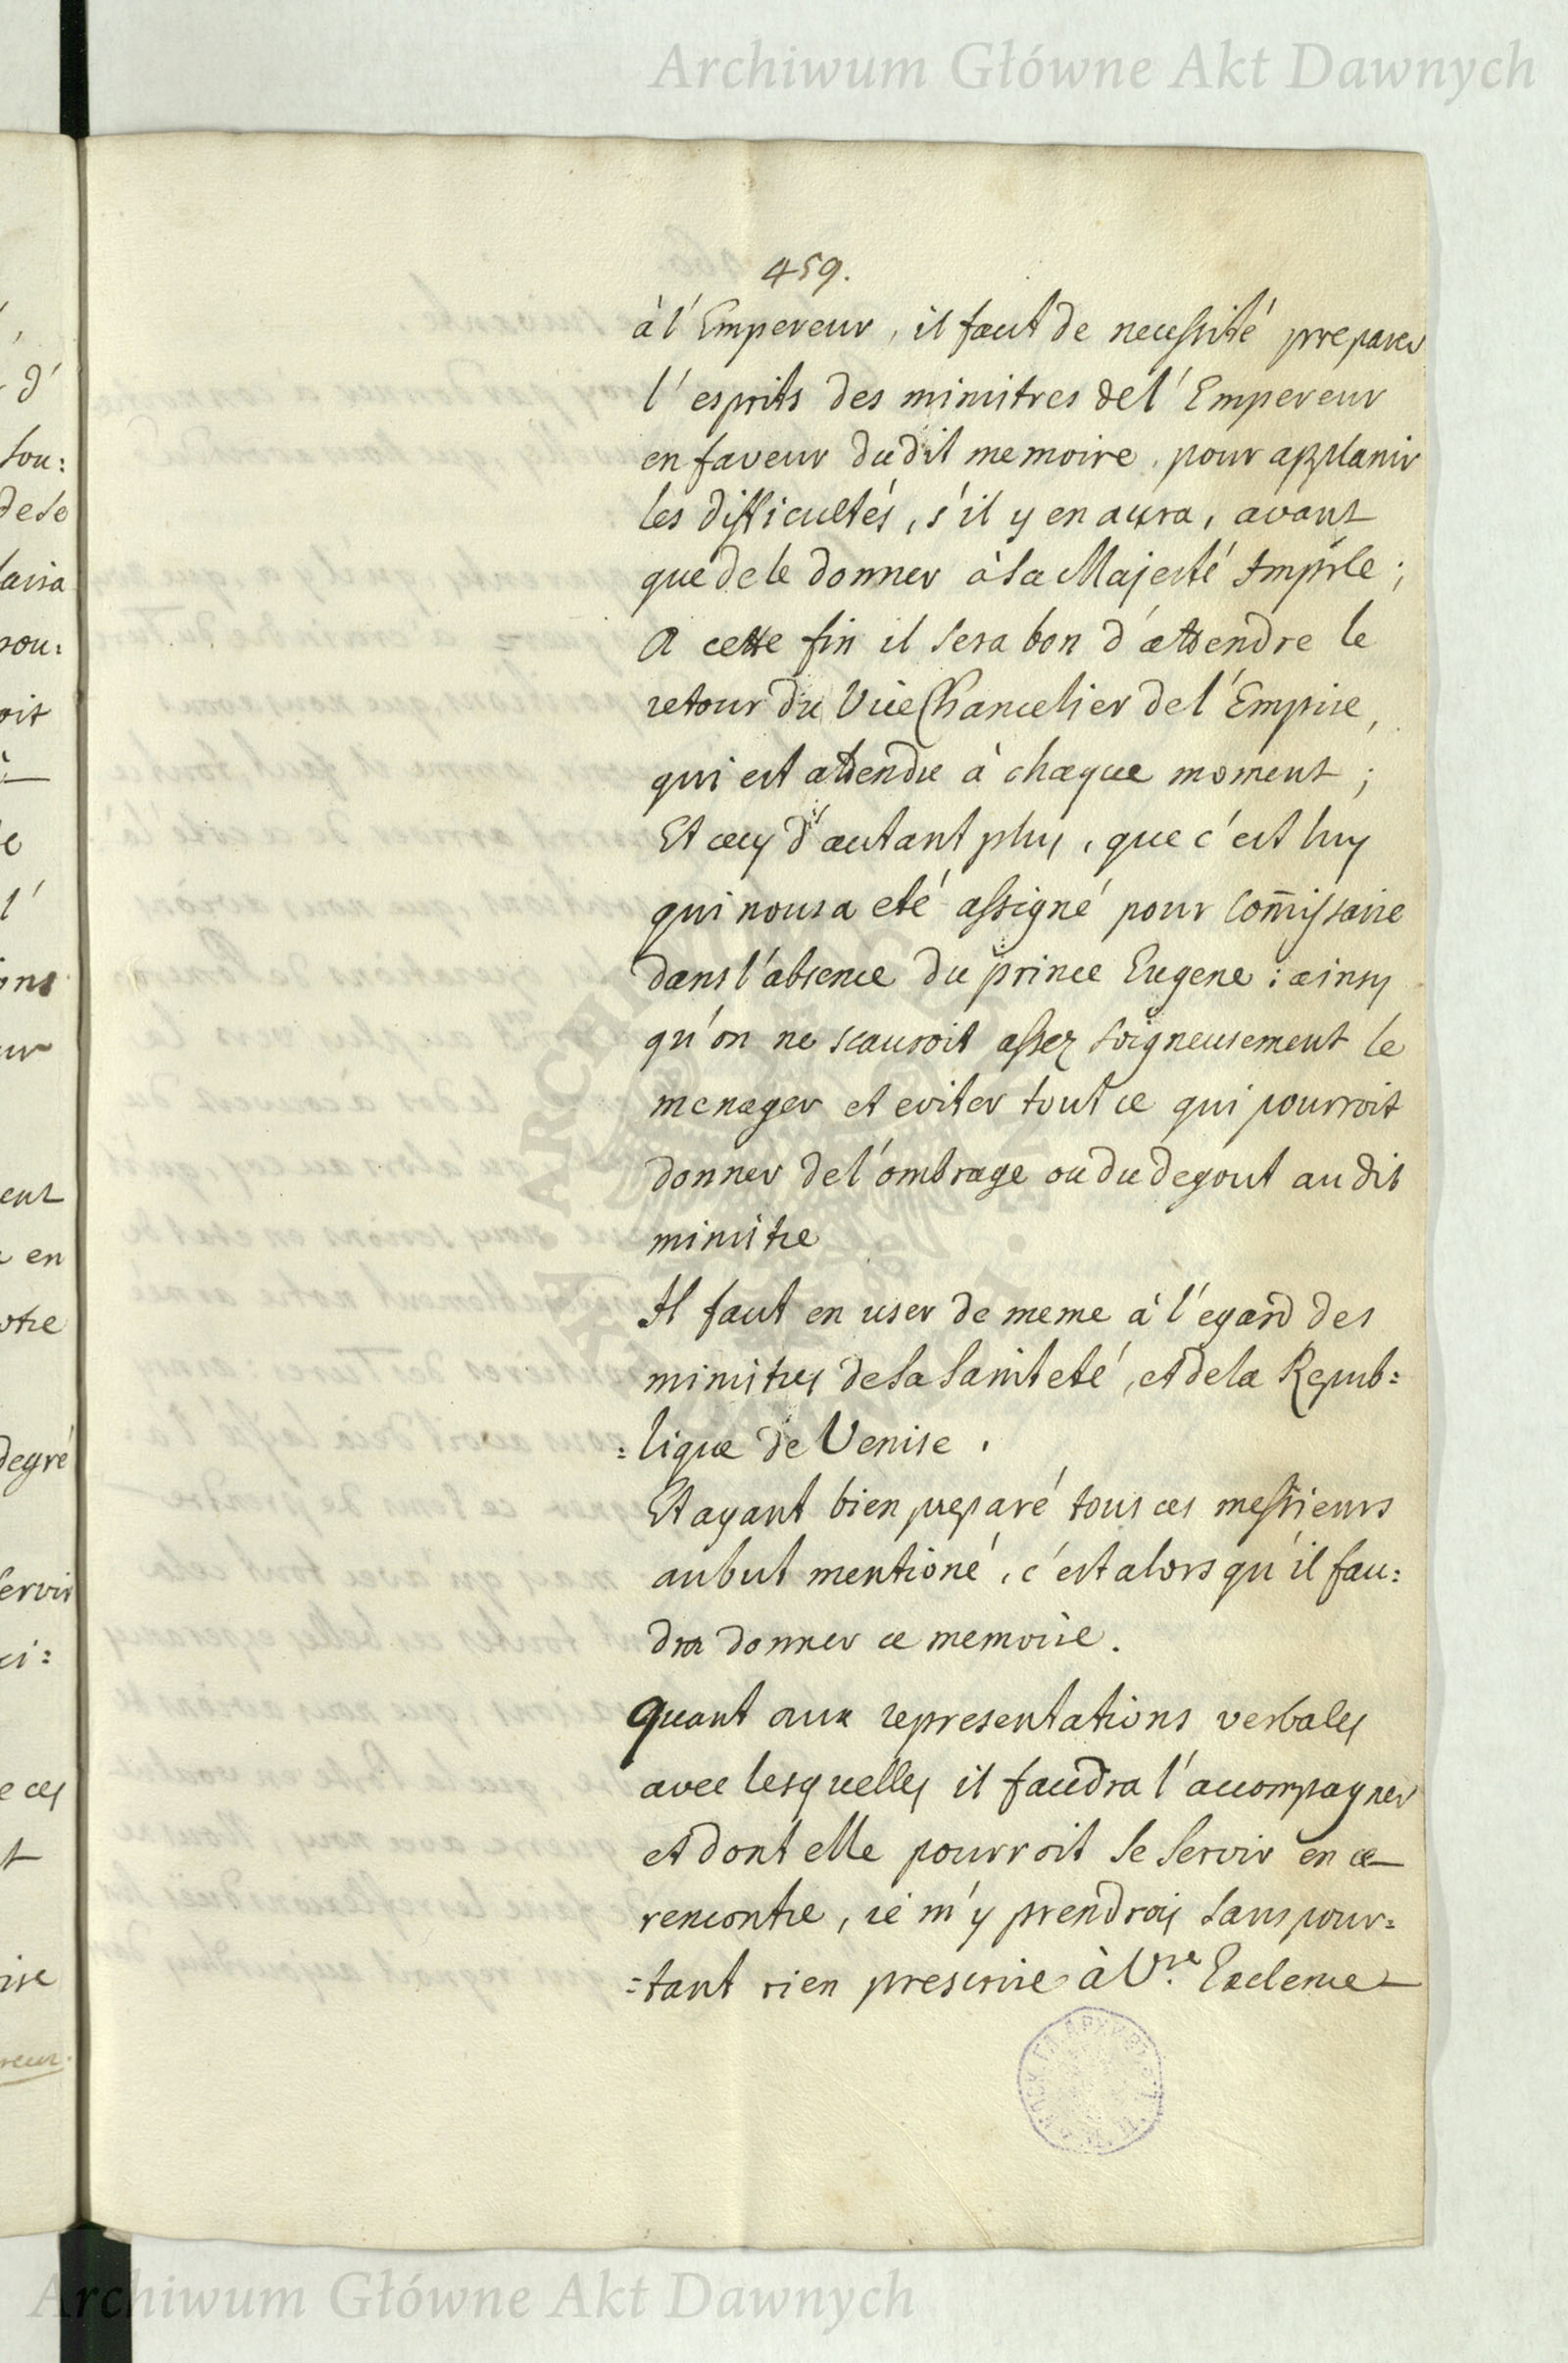 Archiwum Główne Akt Dawnych
459.
à l'Empereur, il faut de necessité preparer
l'esprits des minitres de l'Empereur
en faveur du dit memoire, pour applanir
les difficultés, s'il y en aura, avant
que de le donner à Sa Majesté Imp̃le;
A cette fin il sera bon d'attendre le
retour du Vice Chancelier de l'Empire,
qui est attendu à chaque moment;
Et cecy d'autant plus, que c'est luy
qui nous a eté assigné pour Com̃issaire
dans l'absence du prince Eugene: ainsy
qu'on ne scauroit assez soigneusement le
menager et eviter tout ce qui pourroit
donner de l'ombrage ou du degout au dit
minitre
Il faut en user de meme à l'egard des
minitres de Sa Sainteté, et de la Repub=
=lique de Venise.
Et ayant bien preparé tous ces messieurs
au but mentioné, c'est alors qu'il fau=
dra donner ce memoire.
Quant aux representations verbales
avec lesquelles il faudra l'accompagner
et dont elle pourroit se servir en ce
rencontre, ie m'y prendrois sans pour=
=tant rien prescrire à V.re Exclence
d'
sou:
de se
sou:
oit
e
l'
ons
ur
ent
en
otre
degré
servir
ci:
e ces
t
ise
Archiwum Główne Akt Dawnych